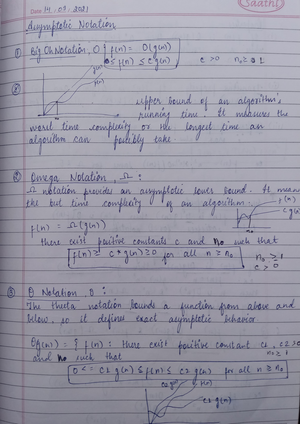 Saathi
Date 14 . 03 . 2021
Asymptotic Notation
① Big Oh Notation, O { f(n) = O(g(n))
0 ≤ f(n) ≤ c g(n) c > 0 n₀ ≥ 1
c g(n)
f(n)
n₀
② Upper bound of an algorithm's
running time. It measures the
worst time complexity or the longest time an
algorithm can possibly take
② Omega Notation, Ω :
Ω notation provides an asymptotic lower bound. It means
the best time complexity of an algorithm.
f(n)
c g(n)
n₀
f(n) = Ω(g(n))
there exist positive constants c and n₀ such that
f(n) ≥ c * g(n) ≥ 0 for all n ≥ n₀
n₀ ≥ 1
c > 0
③ θ Notation, θ :
The theta notation bounds a function from above and
below, so it defines exact asymptotic behavior
θ(g(n)) = { f(n) : there exist positive constant c1, c2 > 0
and n₀ such that n₀ ≥ 1
0 <= c1 g(n) ≤ f(n) ≤ c2 g(n) for all n ≥ n₀
c2 g(n)
f(n)
c1 g(n)